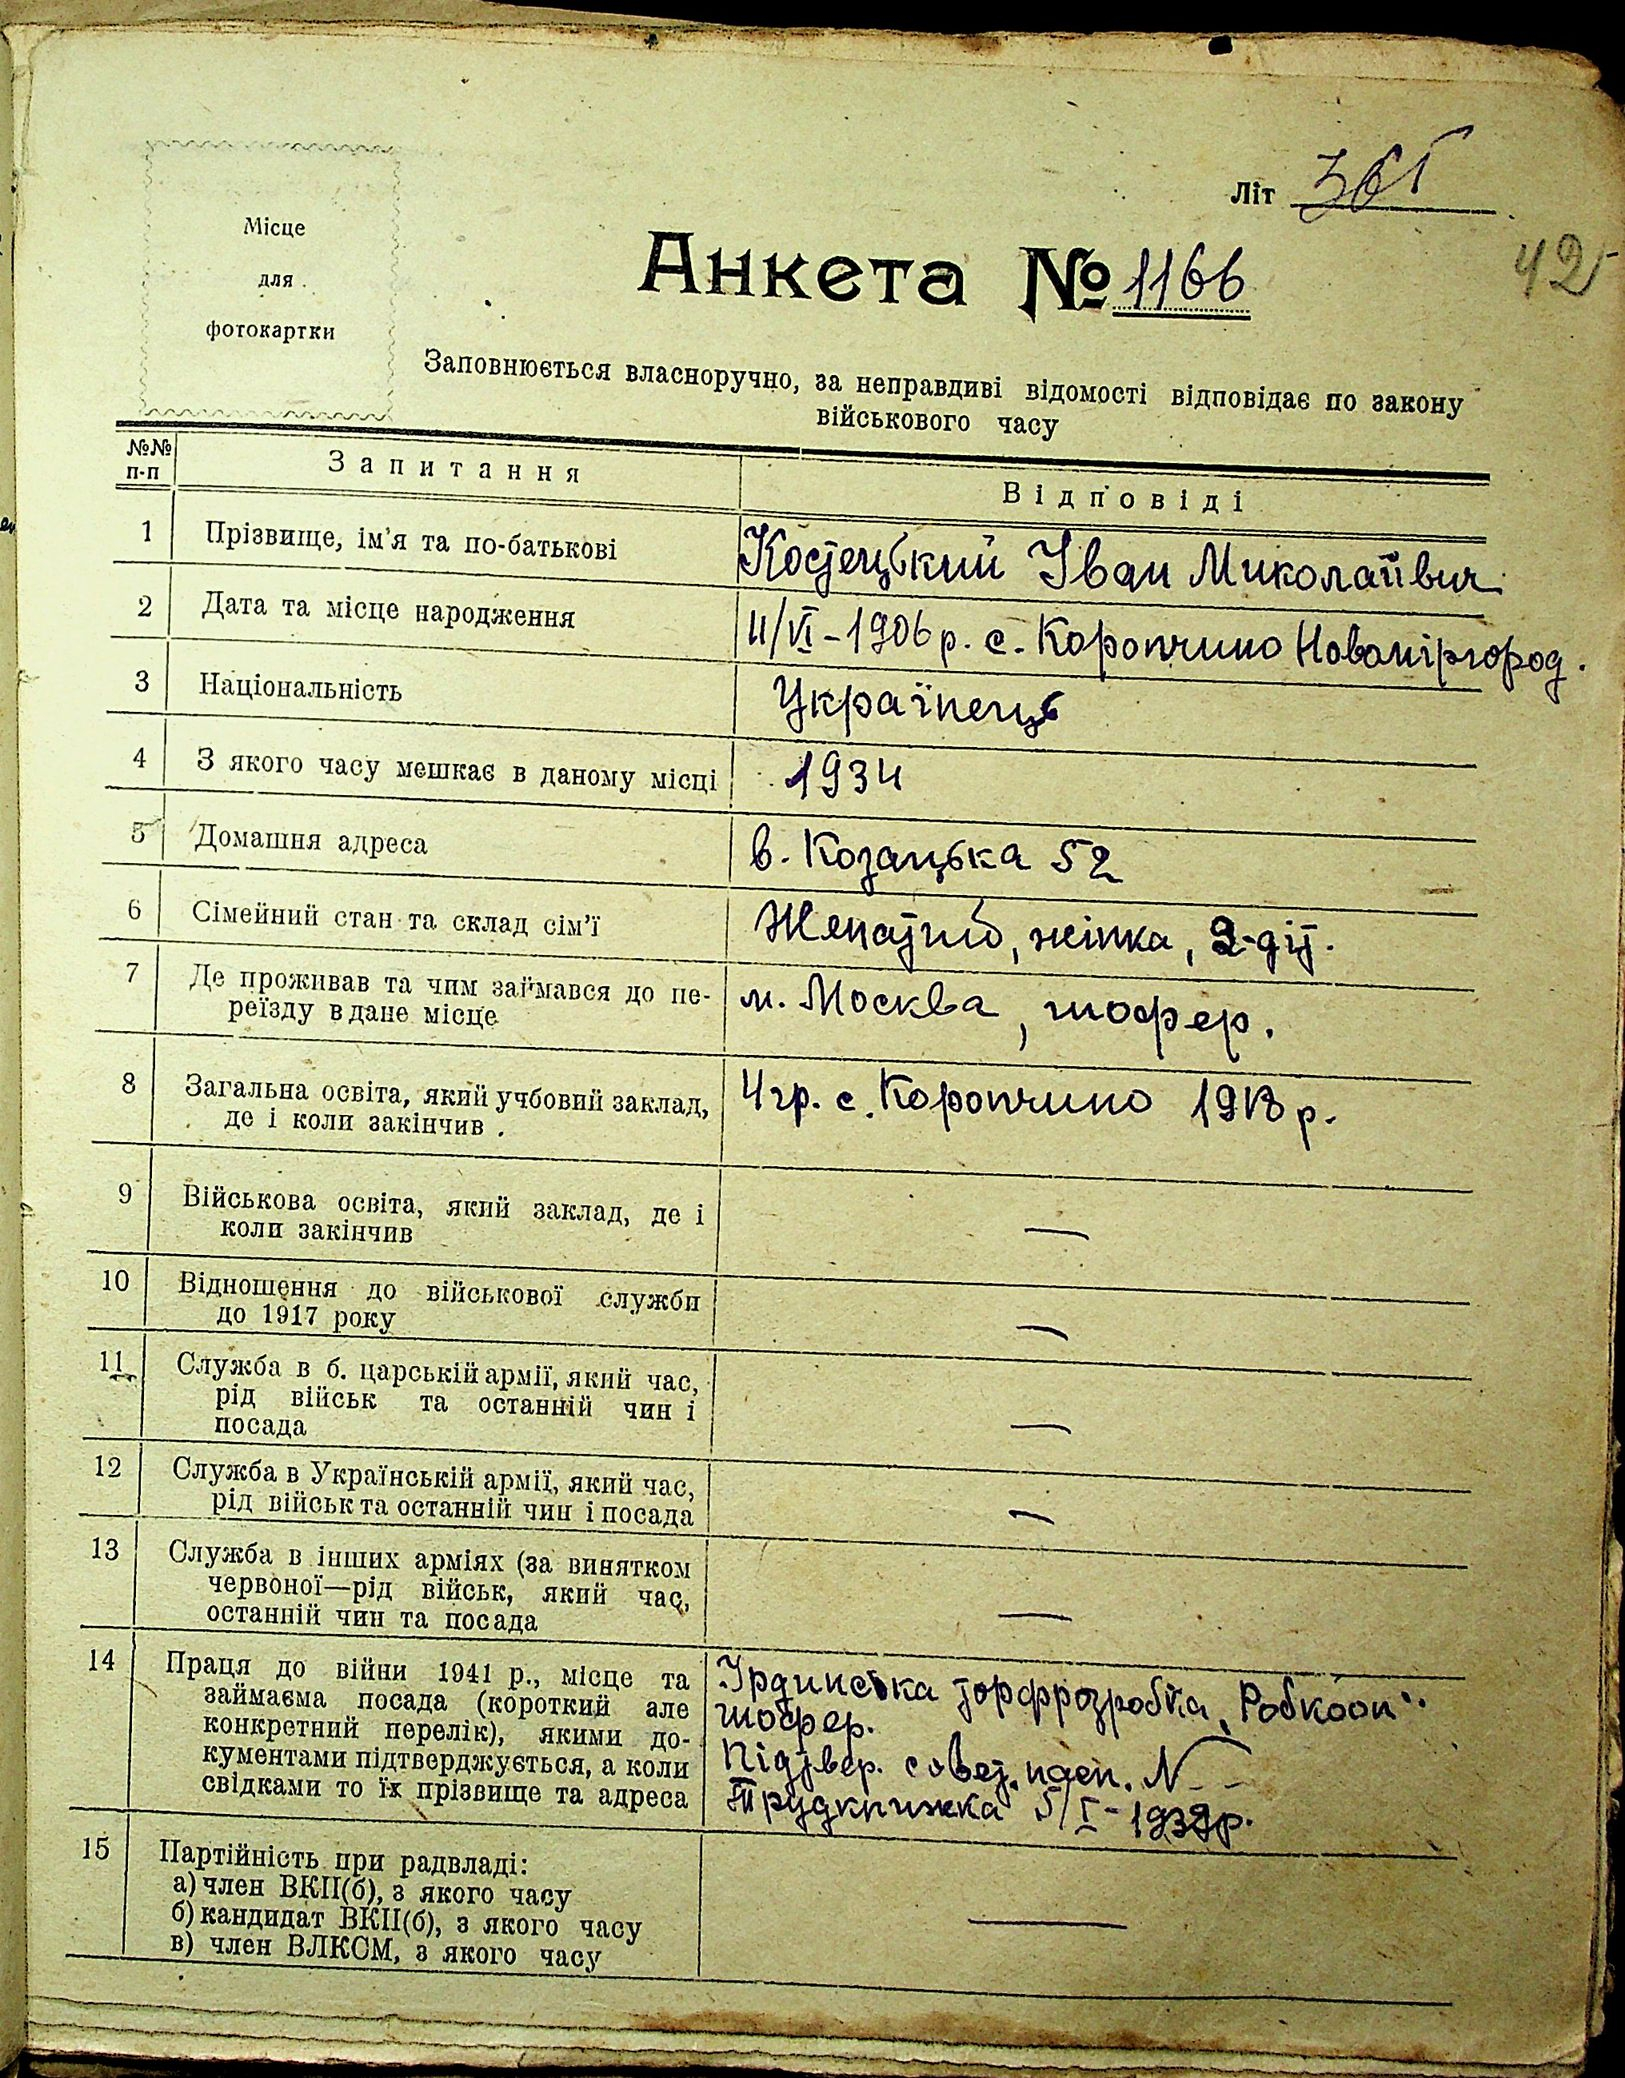 Літ
42
Місце
для
фотокартки
Анкета № 1166
Заповнюється власноручно, за неправдиві відомості відповідає по закону
військового часу
№№ п-п Запитання Відповіді
1 Прізвище, ім'я та по-батькові Костецький Іван Миколаївич
2 Дата та місце народження 11/VI - 1906 р. с. Коропчино Новомиргород.
3 Національність Українець
4 З якого часу мешкає в даному місці 1934
5 Домашня адреса в. Козацька 52
6 Сімейний стан та склад сім'ї Женатий, жінка, 2-діт.
7 Де проживав та чим займався до пе- м. Москва, шофер.
реїзду в дане місце
8 Загальна освіта, який учбовий заклад, 4 гр. с. Коропчино 1918 р.
де і коли закінчив
9 Військова освіта, який заклад, де і —
коли закінчив
10 Відношення до військової служби —
до 1917 року
11 Служба в б. царській армії, який час, —
рід військ та останній чин і
посада
12 Служба в Українській армії, який час, —
рід військ та останній чин і посада
13 Служба в інших арміях (за винятком —
червоної—рід військ, який час,
останній чин та посада
14 Праця до війни 1941 р., місце та Ірдинська торфрозробка „Робкооп"
займаєма посада (короткий але шофер.
конкретний перелік), якими до- Підтвер. совет. пасп. N - -
кументами підтверджується, а коли Трудкнижка 5/I - 1939 р.
свідками то їх прізвище та адреса
15 Партійність при радвладі: —
а) член ВКП(б), з якого часу
б) кандидат ВКП(б), з якого часу
в) член ВЛКСМ, з якого часу